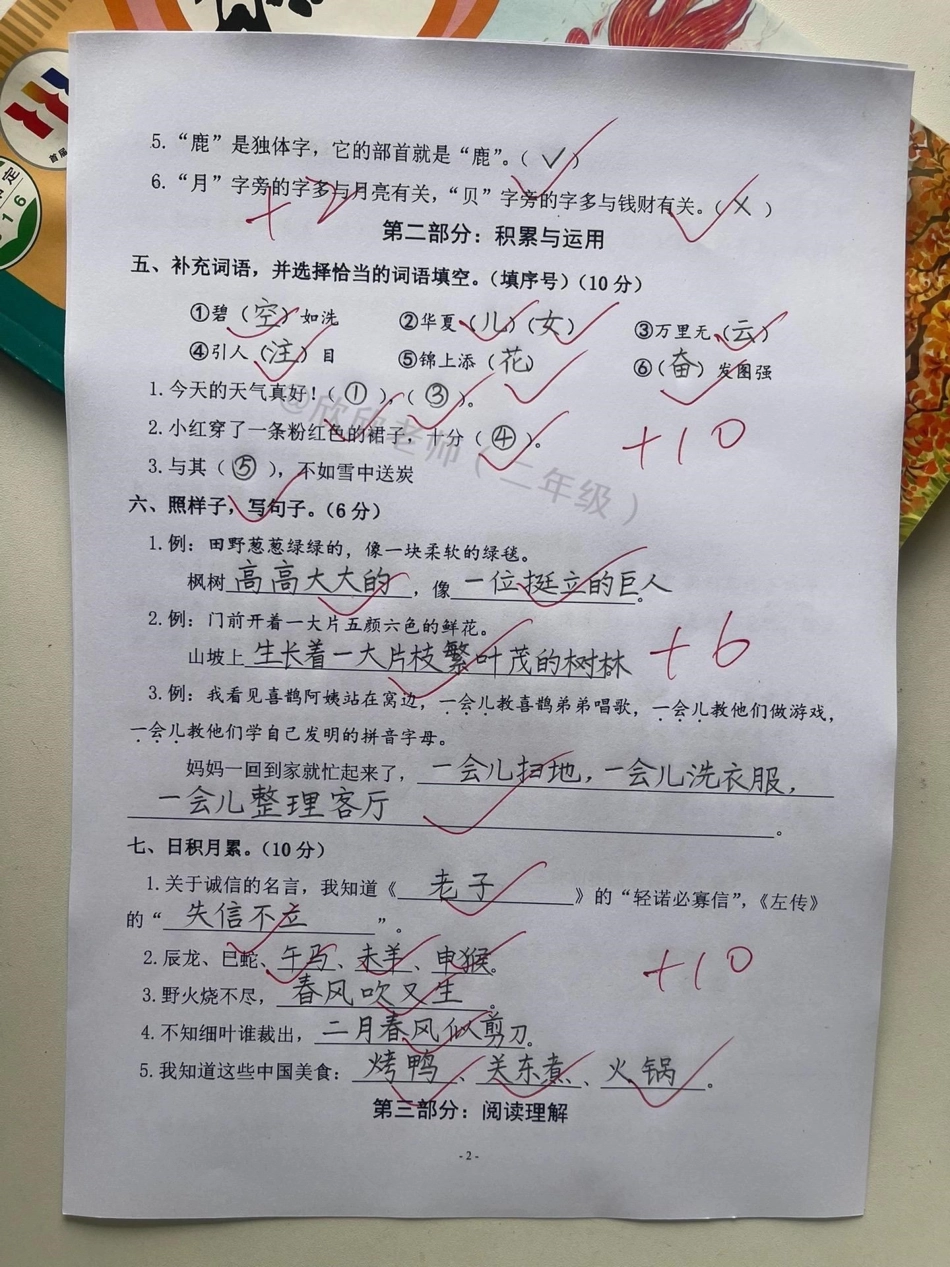 首届
定
16
5.“鹿”是独体字，它的部首就是“鹿”。（ ✓ ）
6.“月”字旁的字多与月亮有关，“贝”字旁的字多与钱财有关。（ × ）
+2
第二部分：积累与运用
五、补充词语，并选择恰当的词语填空。（填序号）（10 分）
①碧（空）如洗 ②华夏（儿）（女） ③万里无（云）
④引人（注）目 ⑤锦上添（花） ⑥（奋）发图强
1.今天的天气真好！（ ① ），（ ③ ）。
2.小红穿了一条粉红色的裙子，十分（ ④ ）。
+10
3.与其（ ⑤ ），不如雪中送炭
@欣欣老师（二年级）
六、照样子，写句子。（6 分）
1.例：田野葱葱绿绿的，像一块柔软的绿毯。
枫树高高大大的，像一位挺立的巨人。
2.例：门前开着一大片五颜六色的鲜花。
山坡上生长着一大片枝繁叶茂的树林。
+6
3.例：我看见喜鹊阿姨站在窝边，一会儿教喜鹊弟弟唱歌，一会儿教他们做游戏，
一会儿教他们学自己发明的拼音字母。
妈妈一回到家就忙起来了，一会儿扫地，一会儿洗衣服，
一会儿整理客厅。
七、日积月累。（10 分）
1.关于诚信的名言，我知道《老子》的“轻诺必寡信”，《左传》
的“失信不立”。
2.辰龙、巳蛇、午马、未羊、申猴。
+10
3.野火烧不尽，春风吹又生。
4.不知细叶谁裁出，二月春风似剪刀。
5.我知道这些中国美食：烤鸭、关东煮、火锅。
第三部分：阅读理解
- 2 -